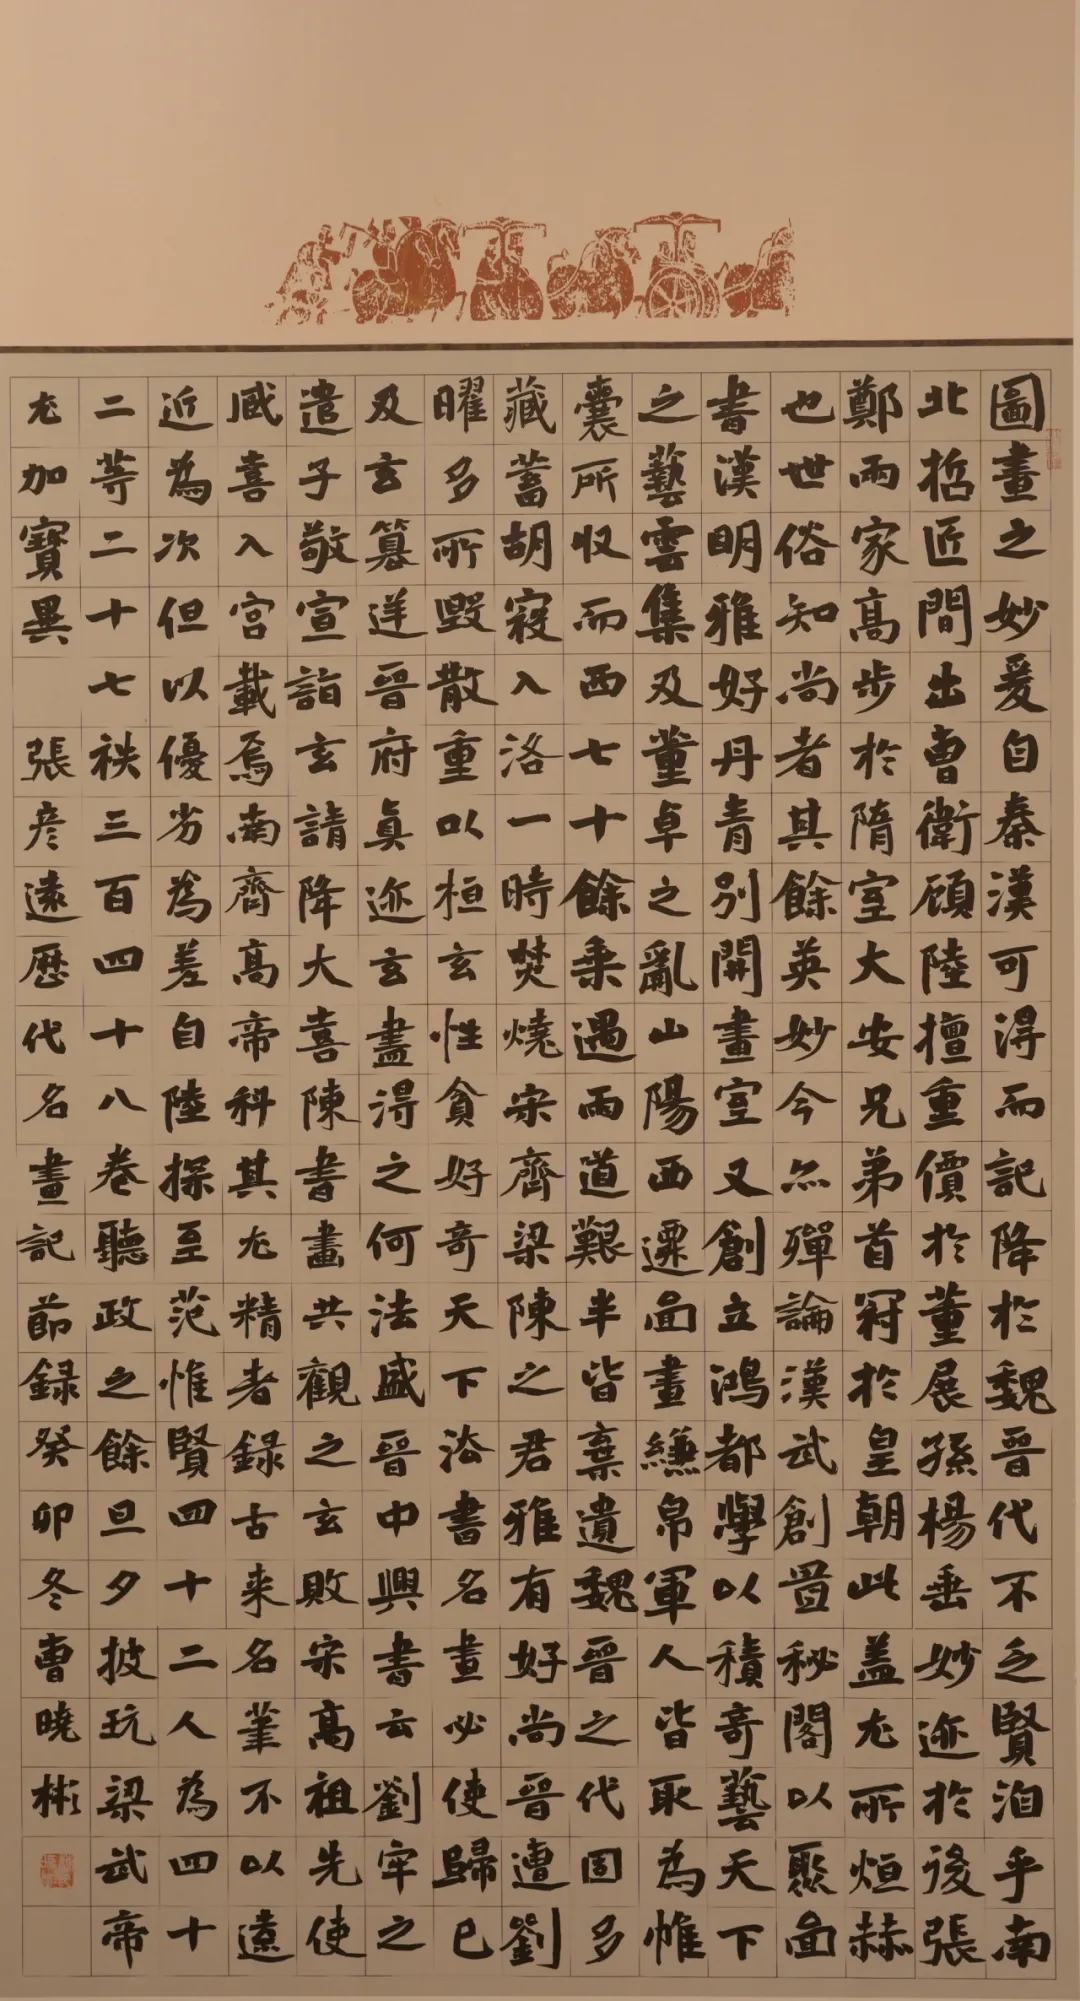 圖畫之妙爰自秦漢可淂而記降於魏晉代不乏賢洎乎南
北哲匠間出曹衛顧陸擅重價於董展孫楊垂妙迹於後張
鄭兩家高步於隋室大安兄弟首冠於皇朝此盖尤所烜赫
也世俗知尚者其餘英妙今亦殫論漢武創置秘閣以聚圖
書漢明雅好丹青別開畫室又創立鴻都學以積奇藝天下
之藝雲集及董卓之亂山陽西遷圖畫縑帛軍人皆取為帷
囊所收而西七十餘乘遇雨道艱半皆棄遺魏晉之代固多
藏蓄胡寇入洛一時焚燒宋齊梁陳之君雅有好尚晉遭劉
曜多所毀散重以桓玄性貪好奇天下法書名畫必使歸己
及玄篡逆晉府真迹玄盡淂之何法盛晉中興書云劉牢之
遣子敬宣詣玄請降大喜陳書畫共觀之玄敗宋高祖先使
臧喜入宮載焉南齊高帝科其尤精者録古来名筆不以遠
近為次但以優劣為差自陸探至范惟賢四十二人為四十
二等二十七袟三百四十八卷聽政之餘旦夕披玩梁武帝
尤加寶異 張彦遠歷代名畫記節録癸卯冬曹曉彬